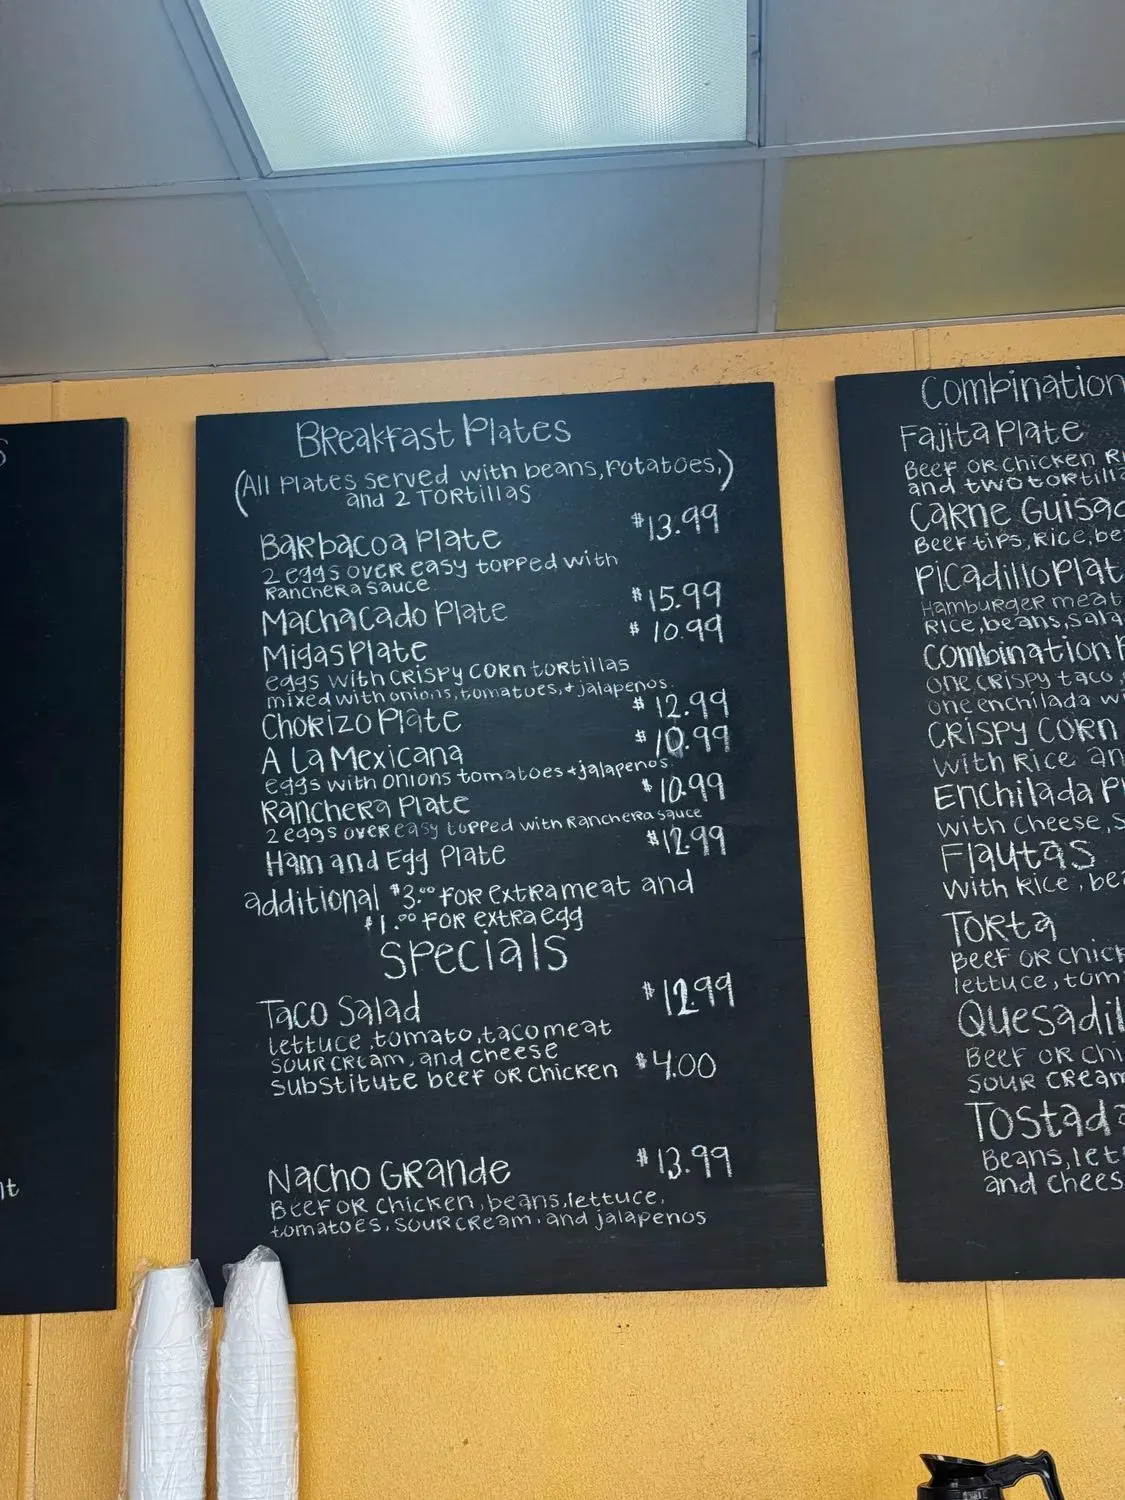 S
Breakfast Plates
(All Plates served with beans, Potatoes,)
and 2 Tortillas
Barbacoa Plate $13.99
2 eggs over easy topped with
Ranchera sauce
Machacado Plate $15.99
Migas Plate $10.99
eggs with crispy corn tortillas
mixed with onions, tomatoes, + jalapenos.
Chorizo Plate $12.99
A La Mexicana $10.99
eggs with onions tomatoes + jalapenos.
Ranchera Plate $10.99
2 eggs over easy topped with Ranchera sauce
Ham and Egg Plate $12.99
additional $3.00 for extra meat and
$1.00 for extra egg
Specials
Taco Salad $12.99
lettuce, tomato, taco meat
sour cream, and cheese
substitute beef or chicken $4.00
Nacho Grande $13.99
Beef or chicken, beans, lettuce,
tomatoes, sour cream, and jalapenos
Combination
Fajita Plate
Beef or chicken Ri
and two tortilla
Carne Guisad
Beef tips, Rice, be
Picadillo Plat
Hamburger meat
Rice, beans, sala
Combination P
one crispy taco,
one enchilada wi
Crispy Corn
with Rice an
Enchilada Pl
with cheese, s
Flautas
with Rice, bea
Torta
Beef or chick
lettuce, tom
Quesadil
Beef or chi
sour cream
Tostada
Beans, let
and chees
nt